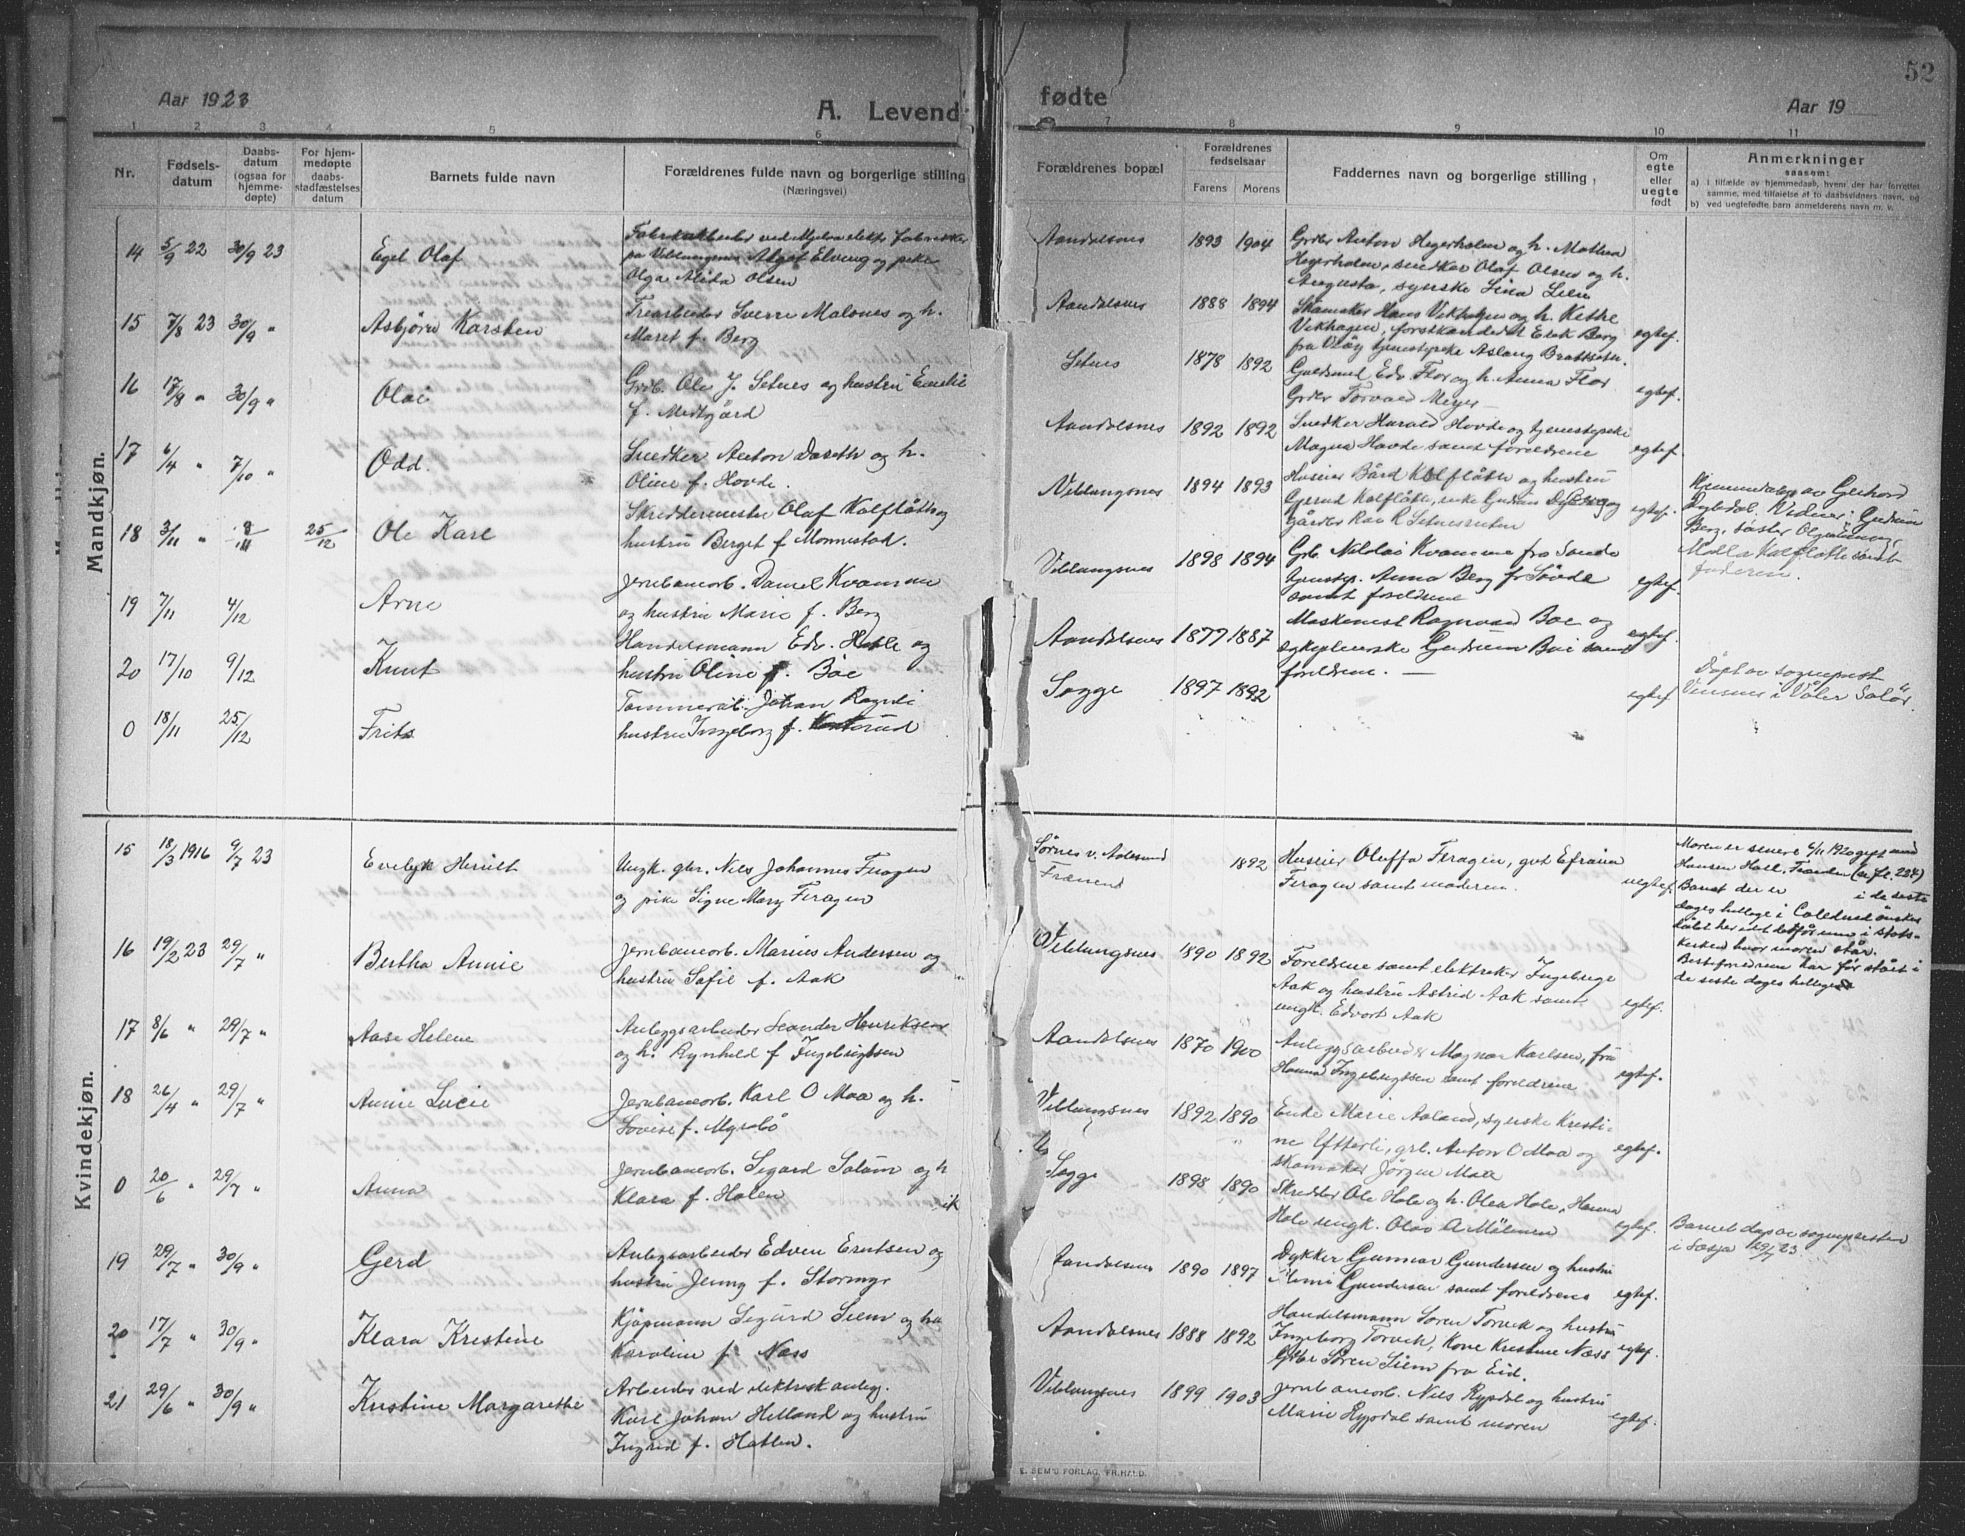 52
Aar 1923
A. Levend
fødte
Aar 19
1 2 3 4 5 6 7 8 9 10 11
Nr.
Fødsels-
datum
Daabs-
datum
(ogsaa for
hjemme-
døpte)
For hjem-
medøpte
daabs-
stadfæstelses
datum
Barnets fulde navn
Forældrenes fulde navn og borgerlige stilling
(Næringsvei)
Forældrenes bopæl
Forældrenes
fødselsaar
Farens Morens
Faddernes navn og borgerlige stilling
Om
egte
eller
uegte
født
Anmerkninger
saasom:
a) I tilfælde av hjemmedaab, hvem der har forrettet
samme, med tilføielse af to daabsvidners navn, og
b) ved uegtefødte barn anmelderens navn m. v.
Mandkjøn.
14 5/9 22 30/9 23 Egel Olaf
Fabrikarbeider ved Mjelva elektr. fabrikker
paa Veblungsnes Algot Elveng og pike
Olga Alida Olsen
Aandalsnes 1893 1904
Grdbr Anton Hegerholm og h. Mathea
Hegerholm, snedker Olaf Olsen og h.
Augusta, syerske Lina Lien
15 7/8 23 30/9 " Asbjörn Karsten
Træarbeider Sverre Malones og h.
Maret f. Berg
Aandalsnes 1888 1894
Skomaker Hans Vikhagen og h. Kethe
Vikhagen, forstkandidat Eiek Berg
fra Vaaj tjenestepike Aslaug Brattseth.
egtef.
16 17/8 " 30/9 " Olai
Grdb. Ole J. Setnes og hustru Emelie
f. Medgård
Setnes 1878 1892
Guldsmed Edv Flor og h. Anna Flor
Grdbr Torvald Meyer
egtef.
17 6/4 " 7/10 " Odd.
Snedker Anton Daseth og h.
Oline f. Hovde.
Aandalsnes 1892 1892
Snedker Harald Hovde og tjenestepike
Magna Hovde samt foreldrene
egtef.
18 3/11 " 8/11 25/12 Ole Karl
Skreddermester Olaf Kolflått og
hustru Berget f. Monnestad.
Veblungsnes 1894 1893
Huseier Bård Kolflått og hustru
Gjerud Kolflått, enke Gudrun Dybberg og
gårdbr Ras R Setnesseuten
egtef.
Hjemmedøpt av Gerhard
Dybdal. Vidner: Gudrun
Berg, søster Olga
Malla Kolflåtte samt
faderen.
19 7/11 4/12 Arne
Jernbanearb. Daniel Kvamme
og hustru Marie f. Berg
Veblungsnes 1898 1894
Grb. Nikolai Kvamme fra Sande
tjenestep. Anna Berg fr Søvde
samt foreldrene
egtef.
20 17/10 9/12 Knut
Handelsmann Edv. Hatle og
hustru Oline f. Böe
Aandalsnes 1877 1887
Maskinist Ragnvald Boe og
sykepleierske Gudrun Boe samt
foreldrene.
egtef.
0 18/11 25/12 Frits
Tømmerarb. Johan Ragndi
hustru Ingeborg f. Kosterud
Sogge 1897 1892
egtef.
Døpt av sogneprest
Vinsnes i Våler Solör.
Kvindekjøn.
15 18/3 1916 9/7 23 Evelyk Heriet
Ungk. gbr. Nils Johannes Furagen
og pike Signe Mary Feragen
Sørnes v. Aalesund
Frænen
1892
Huseier Oluffa Feragen, gvt Efraim
Feragen samt moderen.
uegtef.
Moren er senere 6/11 1920 gift med
Hansen Hall, Tranden (se fl. 224)
Barnet der er i de siste
dages hellige i
kirken hvor moren står.
Besteforeldrene har før stået i
de siste dages hellige
16 19/2 23 29/7 " Bertha Annie
Jernbanearb. Marius Andersen og
hustru Sofie f. Aak
Veblungsnes 1890 1892
Foreldrene samt elektriker Ingeberge
Aak og hustru Astrid Aak samt
ungk. Edvart Aak
egtef.
17 8/6 " 29/7 " Aase Helene
Anleggsarbeider Leander Henriksen
og h. Rynhild f Ingebrigtsen
Aandalsnes 1870 1900
Anleggsarbeider Magnar Karlsen, fru
Hanna Ingebrigtsen samt foreldrene
egtef.
18 26/4 " 29/7 " Annie Lucie
Jernbanearb. Karl O Moa og h.
Lovise f. Myrabö
Veblungsnes 1892 1890
Enke Marie Aaland, syerske Kristi-
ne Ytterli, grb. Anton O Moa og
skomaker Jörgen Moa
egtef.
0 20/6 " 29/7 " Anna
Jernbanearb. Sigard Solöm og h
Klara f. Holen
Sogge 1898 1890
Skredder Ole Hole og h. Olea Hole, Hanna
Hole ungk. Olav A Mölmen
egtef.
Barnet døpt av sognepresten
i Lesja 29/7 23.
19 29/7 " 30/9 " Gerd
Anlegsarbeider Edven Erntsen og
hustru Jenny f. Stormyr
Aandalsnes 1890 1897
Dykker Gunnar Gundersen og hustru
Minni Gundersen samt foreldrene
egtef.
20 17/7 " 30/9 " Klara Kristine
Kjøpmann Sigurd Siem og hu
Karoline f. Næss
Aandalsnes 1888 1892
Handelsmann Sören Torvik og hustru
Ingeborg Torvik, Kone Kristine Næss
Gdbr Sören Siem fra Eid.
egtef.
21 29/6 " 30/9 " Kristine Margarethe
Arbeider ved elektrisk anlegg.
Karl Johan Helland og hustru
Ingrid f. Hatlen.
Veblungsnes 1899 1903
Jernbanearb. Nils Rypdal og hustru
Marie Rypdal samt moren
egtef.
E. SEM'S FORLAG, FR.HALD.